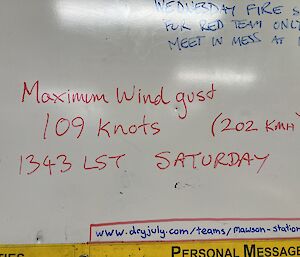 WEDNESDAY FIRE S
FOR RED TEAM ONLY
MEET IN MESS AT
Maximum Wind gust
109 knots (202 KMH)
1343 LST SATURDAY
www.dryjuly.com/teams/mawson-station
PERSONAL MESSAGE